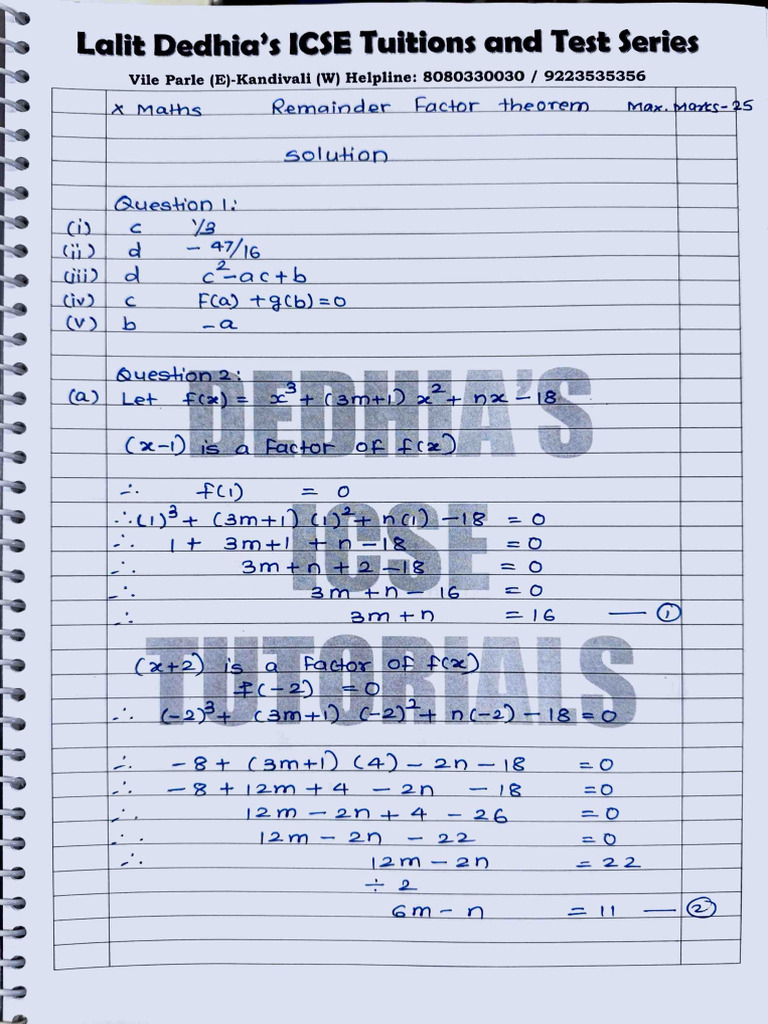 Lalit Dedhia's ICSE Tuitions and Test Series
Vile Parle (E)-Kandivali (W) Helpline: 8080330030 / 9223535356
X Maths Remainder Factor theorem Max. Marks-25
solution
Question 1:
(i) c 1/3
(ii) d - 47/16
(iii) d c²-ac+b
(iv) c F(a) +g(b)=0
(v) b -a
Question 2:
(a) Let f(x) = x³ + (3m+1) x² + nx - 18
(x-1) is a Factor of f(x)
∴ f(1) = 0
∴ (1)³ + (3m+1) (1)² + n(1) -18 = 0
∴ 1 + 3m+1 + n - 18 = 0
∴ 3m + n + 2 - 18 = 0
∴ 3m + n - 16 = 0
∴ 3m + n = 16 — ①
(x+2) is a Factor of f(x)
f(-2) = 0
∴ (-2)³ + (3m+1) (-2)² + n(-2) - 18 = 0
∴ -8 + (3m+1) (4) - 2n - 18 = 0
∴ -8 + 12m + 4 - 2n - 18 = 0
∴ 12m - 2n + 4 - 26 = 0
∴ 12m - 2n - 22 = 0
∴ 12m - 2n = 22
÷ 2
6m - n = 11 — ②
DEDHIA'S
ICSE
TUTORIALS